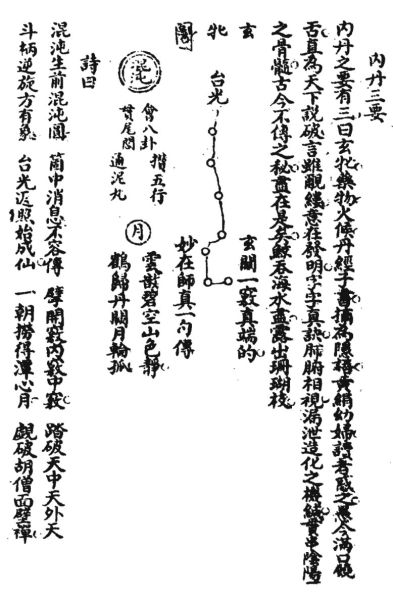 內丹三要
內丹之要有三曰玄牝藥物火候丹經子書摘為隱語黃絹幼婦讀者惑之愚今滿口饒
舌直為天下說破言雖覼縷意在發明字字真訣肺腑相視漏泄造化之機緘貫串陰陽
之骨髓古今不傳之秘盡在是矣鯨吞海水盡露出珊瑚枝
玄牝圖
台光
玄關一竅真端的
妙在師真一句傳
混沌
會八卦 攢五行
貫尾閭 通泥丸
月
雲散碧空山色靜
鶴歸丹闕月輪孤
詩曰
混沌生前混沌圓 箇中消息不容傳 擘開竅內竅中竅 踏破天中天外天
斗柄逆旋方有象 台光返照始成仙 一朝撈得潭心月 覷破胡僧面壁禪